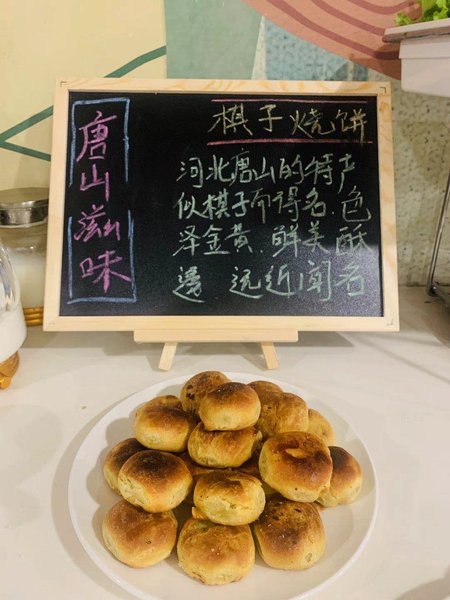 唐山滋味
棋子烧饼
河北唐山的特产
似棋子而得名.色
泽金黄.鲜美酥
远近闻名